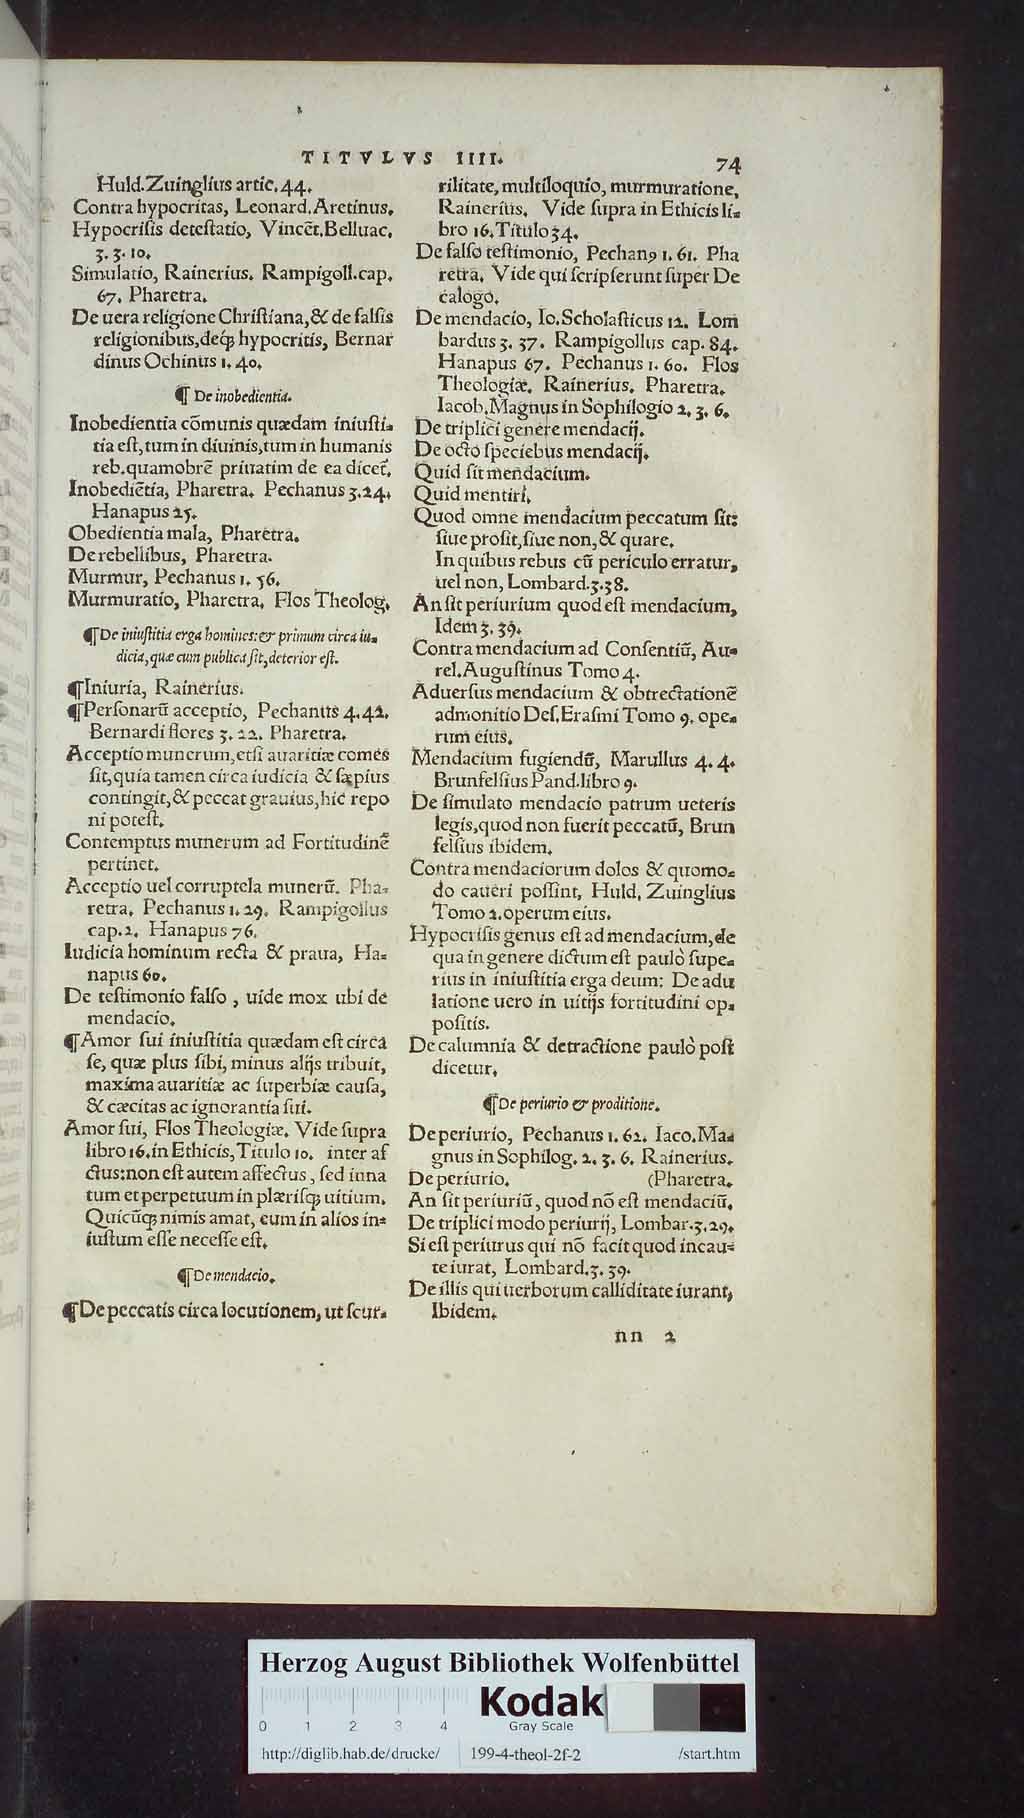 TITVLVS IIII.
74
Huld.Zuinglius artic.44.
Contra hypocritas, Leonard.Aretinus.
Hypocrisis detestatio, Vincēt.Belluac.
3.3.10.
Simulatio, Rainerius. Rampigoll.cap.
67. Pharetra.
De uera religione Christiana,& de falsis
religionibus,deq́; hypocritis, Bernar
dinus Ochinus 1. 40.
¶ De inobedientia.
Inobedientia cōmunis quædam iniusti-
tia est,tum in diuinis,tum in humanis
reb.quamobrē priuatim de ea dicet̃.
Inobediētia, Pharetra. Pechanus 3.24.
Hanapus 25.
Obedientia mala, Pharetra.
De rebellibus, Pharetra.
Murmur, Pechanus 1. 56.
Murmuratio, Pharetra. Flos Theolog.
¶De iniustitia erga homines:& primum circa iu-
dicia,quæ cum publica sit,deterior est.
¶Iniuria, Rainerius.
¶Personarū acceptio, Pechanus 4.42.
Bernardi flores 3. 22. Pharetra.
Acceptio munerum,etsi auaritiæ comes
sit,quia tamen circa iudicia & sæpius
contingit,& peccat grauius,hic repo
ni potest.
Contemptus munerum ad Fortitudinē
pertinet.
Acceptio uel corruptela munerū. Pha-
retra. Pechanus 1.29. Rampigollus
cap.2. Hanapus 76.
Iudicia hominum recta & praua, Ha-
napus 60.
De testimonio falso , uide mox ubi de
mendacio.
¶Amor sui iniustitia quædam est circa
se, quæ plus sibi, minus alijs tribuit,
maxima auaritiæ ac superbiæ causa,
& cæcitas ac ignorantia sui.
Amor sui, Flos Theologiæ. Vide supra
libro 16.in Ethicis, Titulo 10. inter af
ctus:non est autem affectus, sed inna
tum et perpetuum in plærisq; uitium.
Quicūq; nimis amat, eum in alios in-
iustum esse necesse est.
¶De mendacio.
¶De peccatis circa locutionem, ut scur-
rilitate, multiloquio, murmuratione,
Rainerius. Vide supra in Ethicis li-
bro 16.Titulo 34.
De falso testimonio, Pechanꝰ 1. 61. Pha
retra. Vide qui scripserunt super De
calogo.
De mendacio, Io.Scholasticus 12. Lom
bardus 3. 37. Rampigollus cap. 84.
Hanapus 67. Pechanus 1. 60. Flos
Theologiæ. Rainerius. Pharetra.
Iacob.Magnus in Sophilogio 2. 3. 6.
De triplici genere mendacij.
De octo speciebus mendacij.
Quid sit mendacium.
Quid mentiri.
Quod omne mendacium peccatum sit:
siue prosit,siue non,& quare.
In quibus rebus cū periculo erratur,
uel non, Lombard.3.38.
An sit periurium quod est mendacium,
Idem 3. 39.
Contra mendacium ad Consentiū, Au-
rel.Augustinus Tomo 4.
Aduersus mendacium & obtrectationē
admonitio Des.Erasmi Tomo 9. ope-
rum eius.
Mendacium fugiendū, Marullus 4. 4.
Brunfelsius Pand.libro 9.
De simulato mendacio patrum ueteris
legis,quod non fuerit peccatū, Brun
felsius ibidem.
Contra mendaciorum dolos & quomo-
do caueri possint, Huld. Zuinglius
Tomo 2.operum eius.
Hypocrisis genus est ad mendacium,de
qua in genere dictum est paulò supe-
rius in iniustitia erga deum: De adu
latione uero in uitijs fortitudini op-
positis.
De calumnia & detractione paulò post
dicetur.
¶De periurio & proditione.
De periurio, Pechanus 1. 62. Iaco.Ma-
gnus in Sophilog. 2. 3. 6. Rainerius.
De periurio. (Pharetra.
An sit periuriū, quod nō est mendaciū.
De triplici modo periurij, Lombar.3.29.
Si est periurus qui nō facit quod incau-
te iurat, Lombard.3. 39.
De illis qui uerborum calliditate iurant,
Ibidem.
nn 2
Herzog August Bibliothek Wolfenbüttel
Kodak
0 1 2 3 4 Gray Scale
http://diglib.hab.de/drucke/ 199-4-theol-2f-2 /start.htm